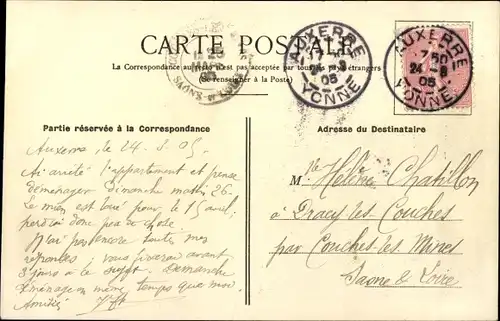 CARTE POSTALE
La Correspondance au recto n'est pas acceptée par tous pays étrangers
(Se renseigner à la Poste)
AUXERRE
7 50
24 -3
05
YONNE
AUXERRE
7 50
24 -3
05
YONNE
SAONE-
Partie réservée à la Correspondance
Adresse du Destinataire
Auxerre, le 24. 3. 05.
Ai arrêté l'appartement et pense
déménager Dimanche matin 26.
Le mien est loué pour le 15 avril,
donc peu de chose.
N'ai pas encore toutes mes
réponses, vous avant
3 jours à le
en même temps que moi.
Amitiés
Mlle Hélène Chatillon
à Dracy les Couches
par Couches les Mines
Saone & Loire